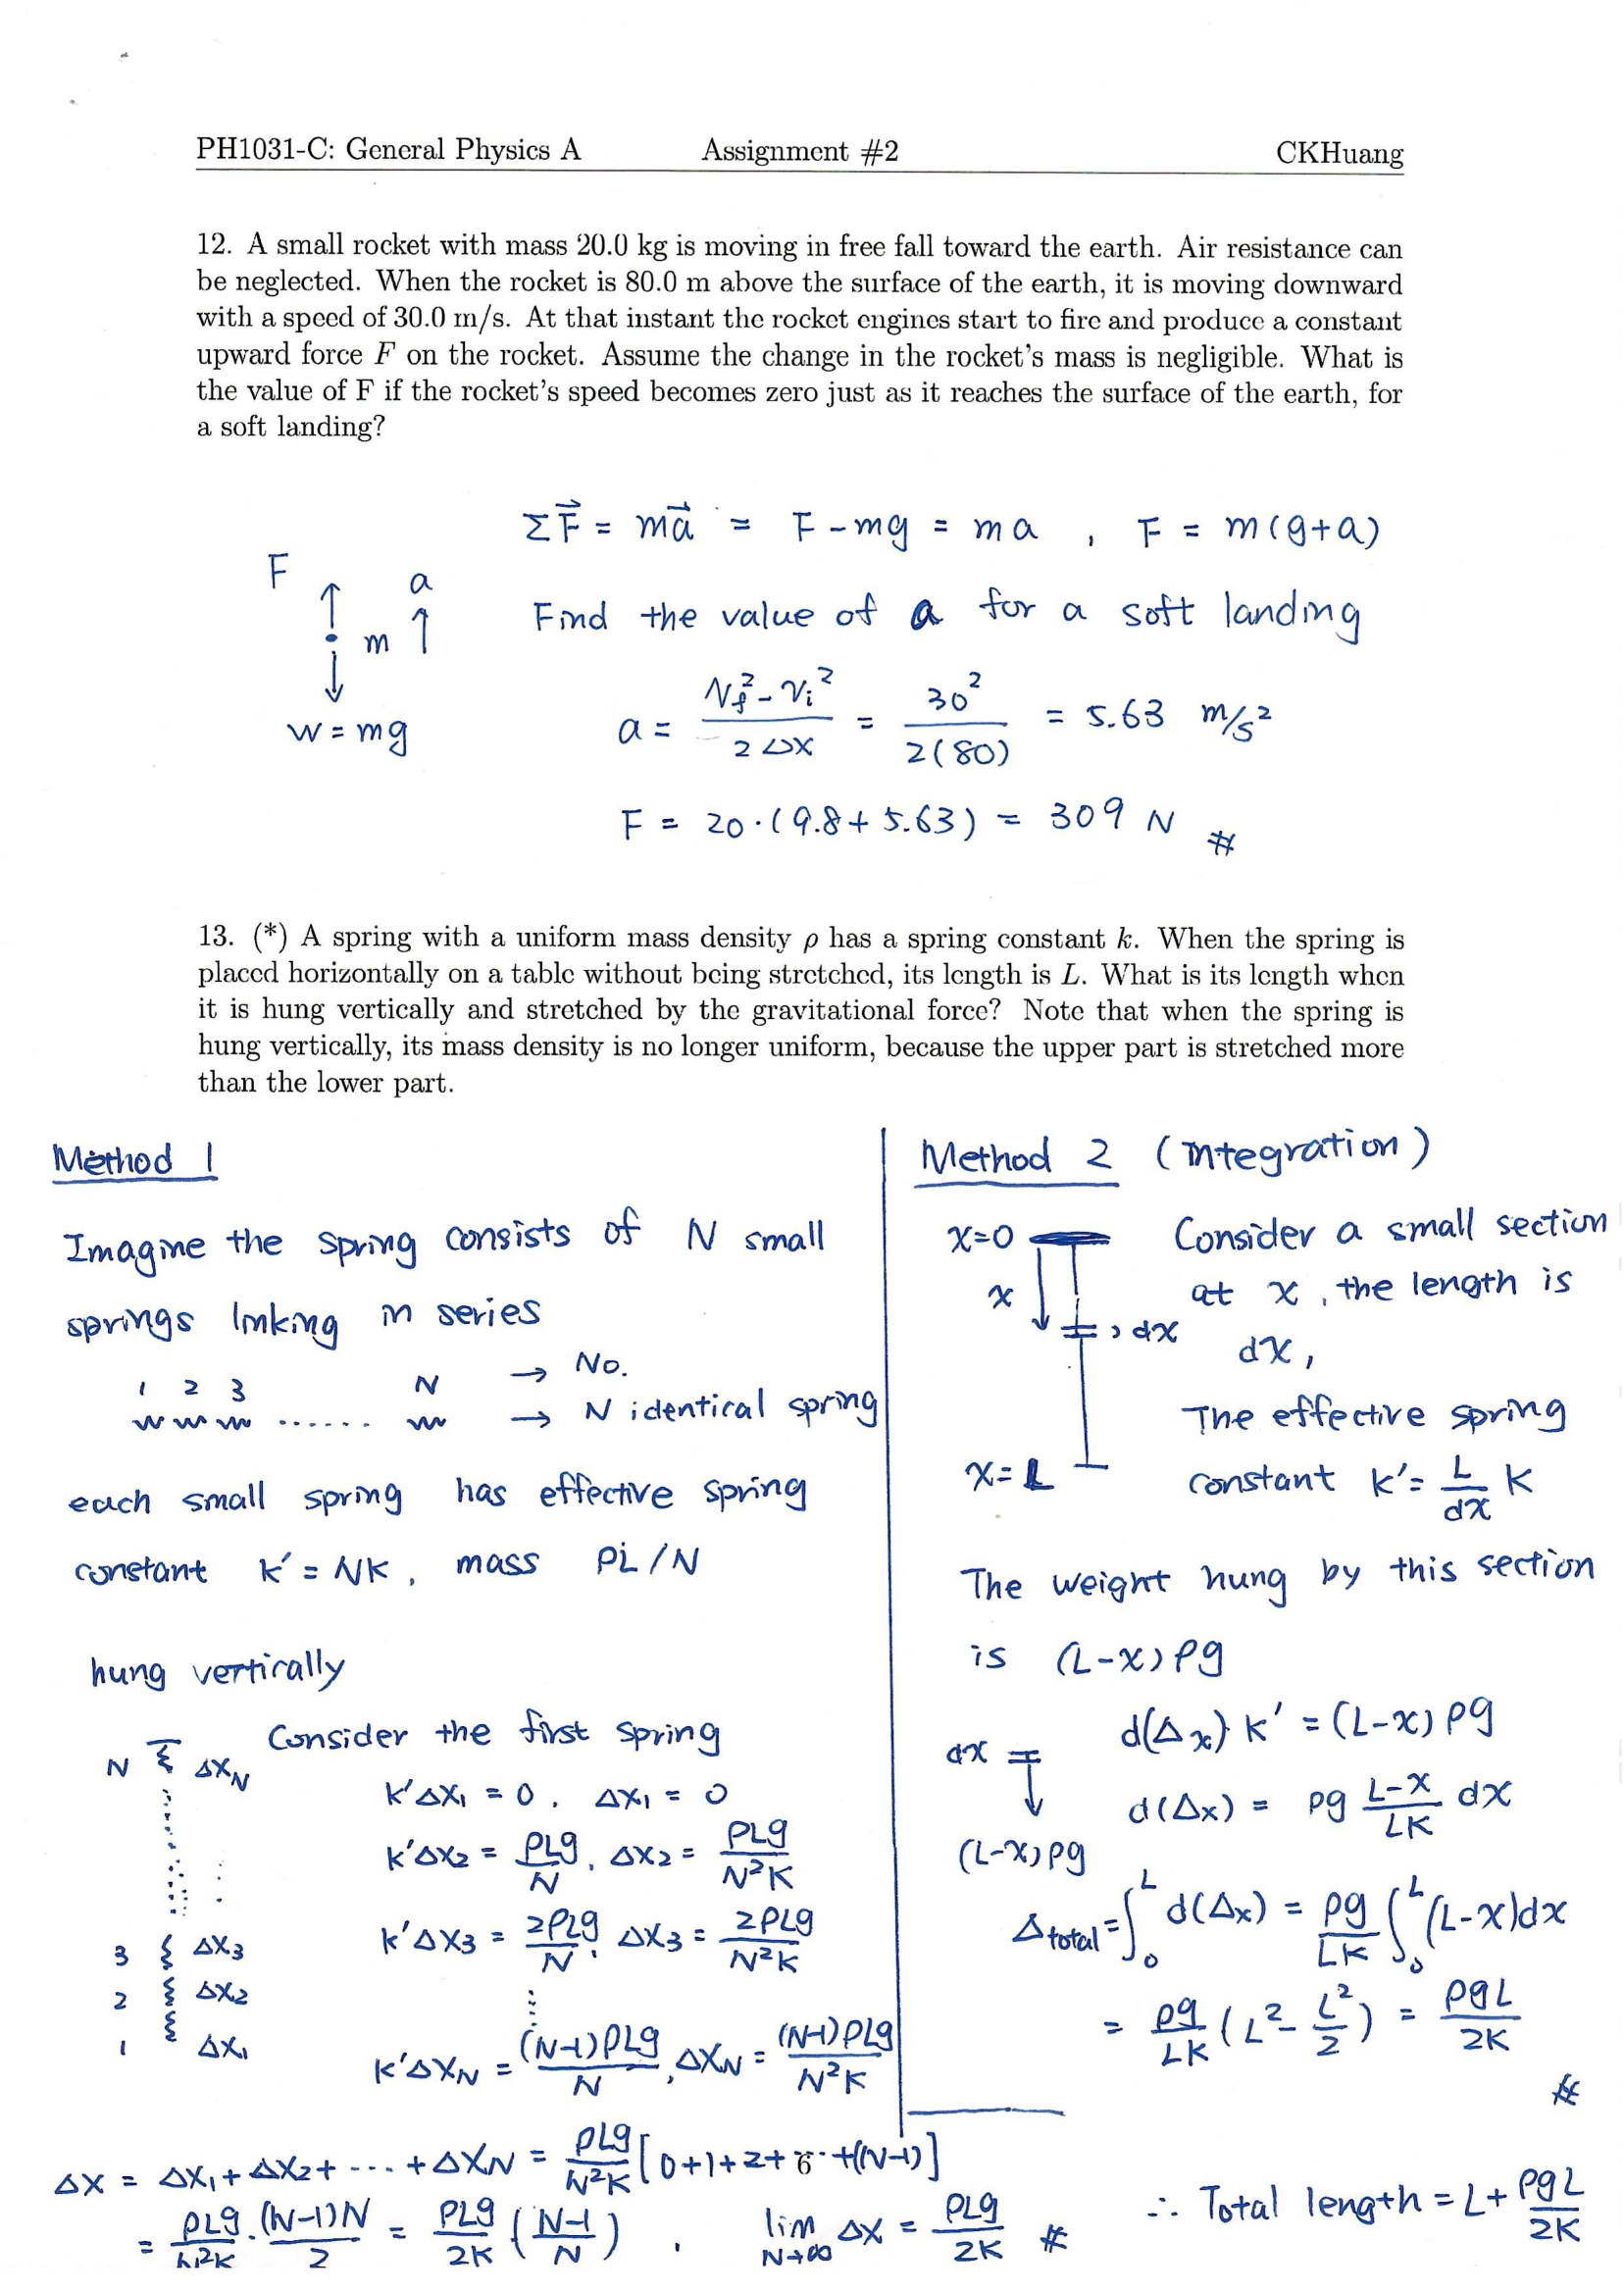 PH1031-C: General Physics A Assignment #2 CKHuang
12. A small rocket with mass 20.0 kg is moving in free fall toward the earth. Air resistance can
be neglected. When the rocket is 80.0 m above the surface of the earth, it is moving downward
with a speed of 30.0 m/s. At that instant the rocket engines start to fire and produce a constant
upward force F on the rocket. Assume the change in the rocket's mass is negligible. What is
the value of F if the rocket's speed becomes zero just as it reaches the surface of the earth, for
a soft landing?
ΣF⃗ = ma⃗ = F - mg = ma , F = m(g+a)
F
a
m
w = mg
Find the value of a for a soft landing
a = (Vf² - Vi²)/(2Δx) = 30²/2(80) = 5.63 m/s²
F = 20·(9.8+5.63) = 309 N #
13. (*) A spring with a uniform mass density ρ has a spring constant k. When the spring is
placed horizontally on a table without being stretched, its length is L. What is its length when
it is hung vertically and stretched by the gravitational force? Note that when the spring is
hung vertically, its mass density is no longer uniform, because the upper part is stretched more
than the lower part.
Method 1
Imagine the spring consists of N small
springs linking in series
1 2 3 N → No.
...... → N identical spring
each small spring has effective spring
constant k' = NK, mass ρL/N
hung vertically
Consider the first spring
N ΔXN
3 ΔX3
2 ΔX2
1 ΔX1
k'ΔX1 = 0, ΔX1 = 0
k'ΔX2 = ρLg/N, ΔX2 = ρLg/N²K
k'ΔX3 = 2ρLg/N, ΔX3 = 2ρLg/N²K
⋮
k'ΔXN = (N-1)ρLg/N, ΔXN = (N-1)ρLg/N²K
ΔX = ΔX1 + ΔX2 + --- + ΔXN = ρLg/N²K [0+1+2+ ··· +(N-1)]
6
= ρLg/N²K · (N-1)N/2 = ρLg/2K (N-1/N), lim N→∞ ΔX = ρLg/2K #
Method 2 (Integration)
x=0
x
dx
x=L
Consider a small section
at x, the length is
dx,
The effective spring
constant k' = L/dx K
The weight hung by this section
is (L-x)ρg
dx
(L-x)ρg
d(Δx) k' = (L-x)ρg
d(Δx) = ρg (L-x)/LK dx
Δtotal = ∫₀ᴸ d(Δx) = ρg/LK ∫₀ᴸ (L-x)dx
= ρg/LK (L² - L²/2) = ρgL/2K
#
∴ Total length = L + ρgL/2K